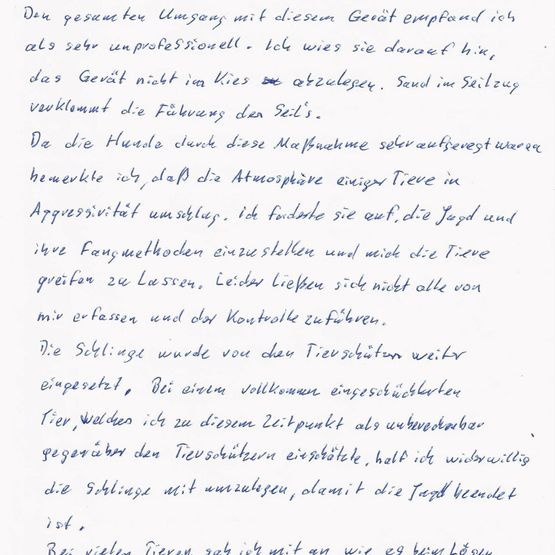 Den gesamten Umgang mit diesem Gerät empfand ich
als sehr unprofessionell. Ich wies sie darauf hin,
das Gerät nicht im Kies abzulegen. Sand im Seilzug
verklemmt die Führung des Seil's.
Da die Hunde durch diese Maßnahme sehr aufgeregt waren
bemerkte ich, daß die Atmosphäre einiger Tiere in
Aggressivität umschlug. Ich forderte sie auf, die Jagd und
ihre Fangmethoden einzustellen und mich die Tiere
greifen zu lassen. Leider ließen sich nicht alle von
mir erfassen und der Kontrolle zuführen.
Die Schlinge wurde von den Tierschützern weiter
eingesetzt. Bei einem vollkommen eingeschüchterten
Tier, welches ich zu diesem Zeitpunkt als unberechenbar
gegenüber den Tierschützern einschätzte, half ich widerwillig
die Schlinge mit umzulegen, damit die Jagd beendet
ist.
Bei vielen Tieren sah ich mit an wie es beim Lösen